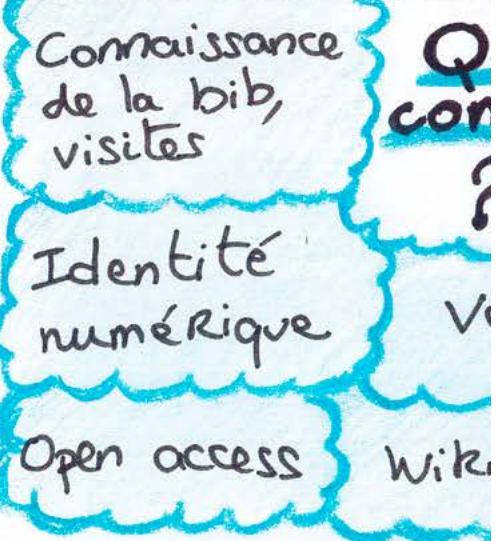 Connaissance
de la bib,
visites
Identité
numérique
Open access